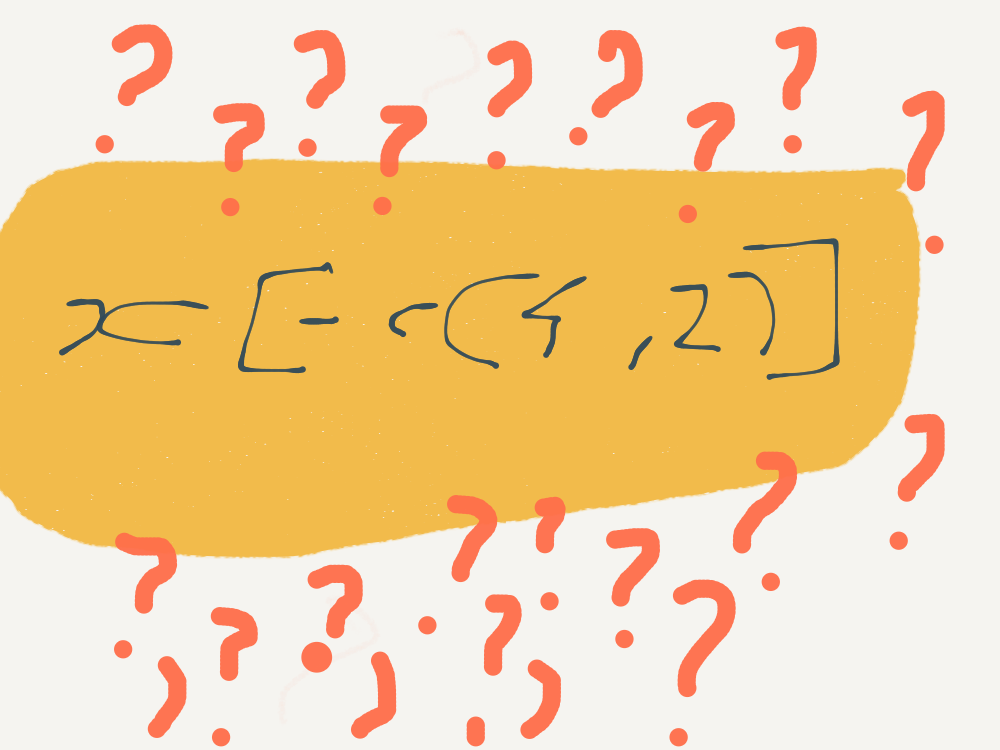 ? ? ? ? ?
? ? ? ?
x[-c(4,2)]
?
? ? ? ? ?
? ? ? ?
? ? ?